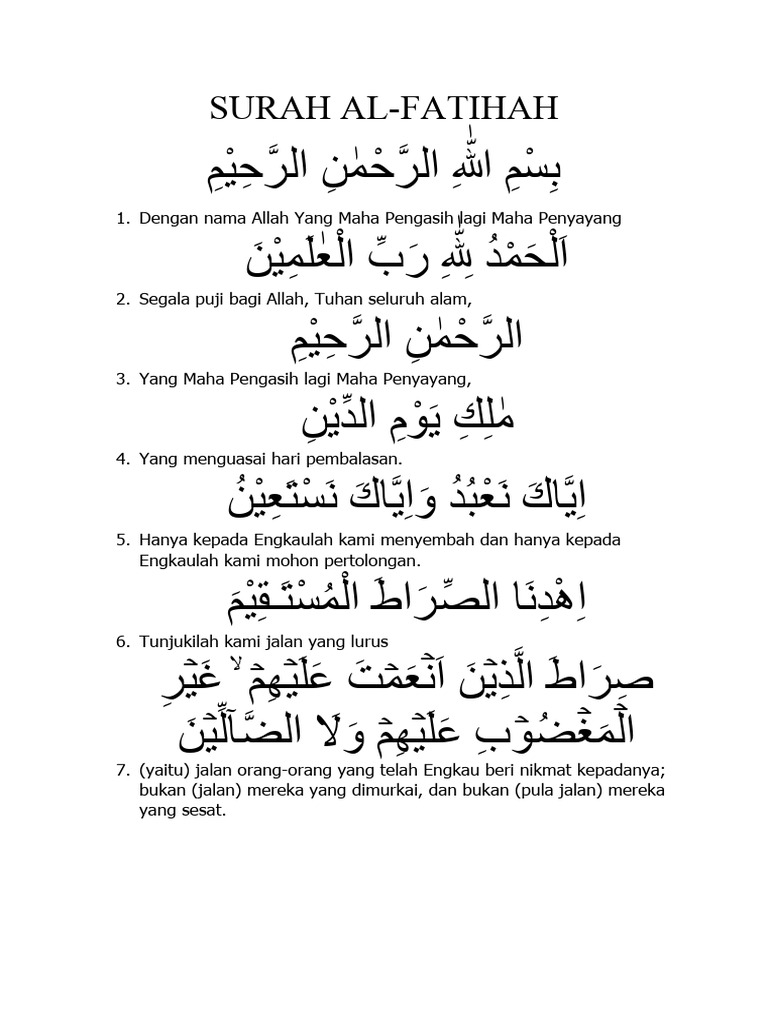 SURAH AL-FATIHAH
بِسْمِ اللّٰهِ الرَّحْمٰنِ الرَّحِيْمِ
1. Dengan nama Allah Yang Maha Pengasih lagi Maha Penyayang
اَلْحَمْدُ لِلّٰهِ رَبِّ الْعٰلَمِيْنَ
2. Segala puji bagi Allah, Tuhan seluruh alam,
الرَّحْمٰنِ الرَّحِيْمِ
3. Yang Maha Pengasih lagi Maha Penyayang,
مٰلِكِ يَوْمِ الدِّيْنِ
4. Yang menguasai hari pembalasan.
اِيَّاكَ نَعْبُدُ وَاِيَّاكَ نَسْتَعِيْنُ
5. Hanya kepada Engkaulah kami menyembah dan hanya kepada
Engkaulah kami mohon pertolongan.
اِهْدِنَا الصِّرَاطَ الْمُسْتَـقِيْمَ
6. Tunjukilah kami jalan yang lurus
صِرَاطَ الَّذِيْنَ اَنْعَمْتَ عَلَيْهِمْ ۙ غَيْرِ
الْمَغْضُوْبِ عَلَيْهِمْ وَلَا الضَّآلِّيْنَ
7. (yaitu) jalan orang-orang yang telah Engkau beri nikmat kepadanya;
bukan (jalan) mereka yang dimurkai, dan bukan (pula jalan) mereka
yang sesat.